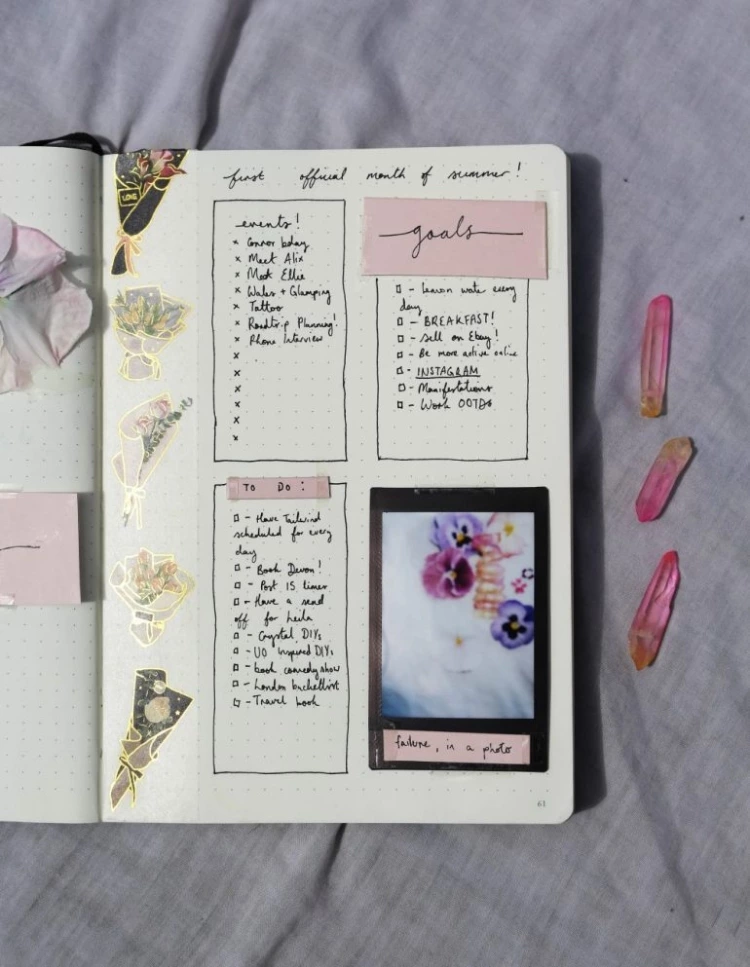 first official month of summer!
LOVE
events!
x Connor bday
x Meet Alix
x Meet Ellie
x Wales + Glamping
x Tattoo
x Roadtrip Planning!
x Phone Interview
x
x
x
x
x
x
goals
□ - lemon water every
day
□ - BREAKFAST!
□ - Sell on Ebay!
□ - Be more active online
□ - INSTAGRAM
□ - Manifestations
□ - Work OOTDs
TO DO:
□ - Have Tailwind
scheduled for every
day
□ - Book Devon!
□ - Post 15 times
□ - Have a send
off for Leila
□ - Crystal DIYs
□ - UO Inspired DIYs
□ - book comedy show
□ - London bucketlist
□ - Travel book
failure, in a photo
61